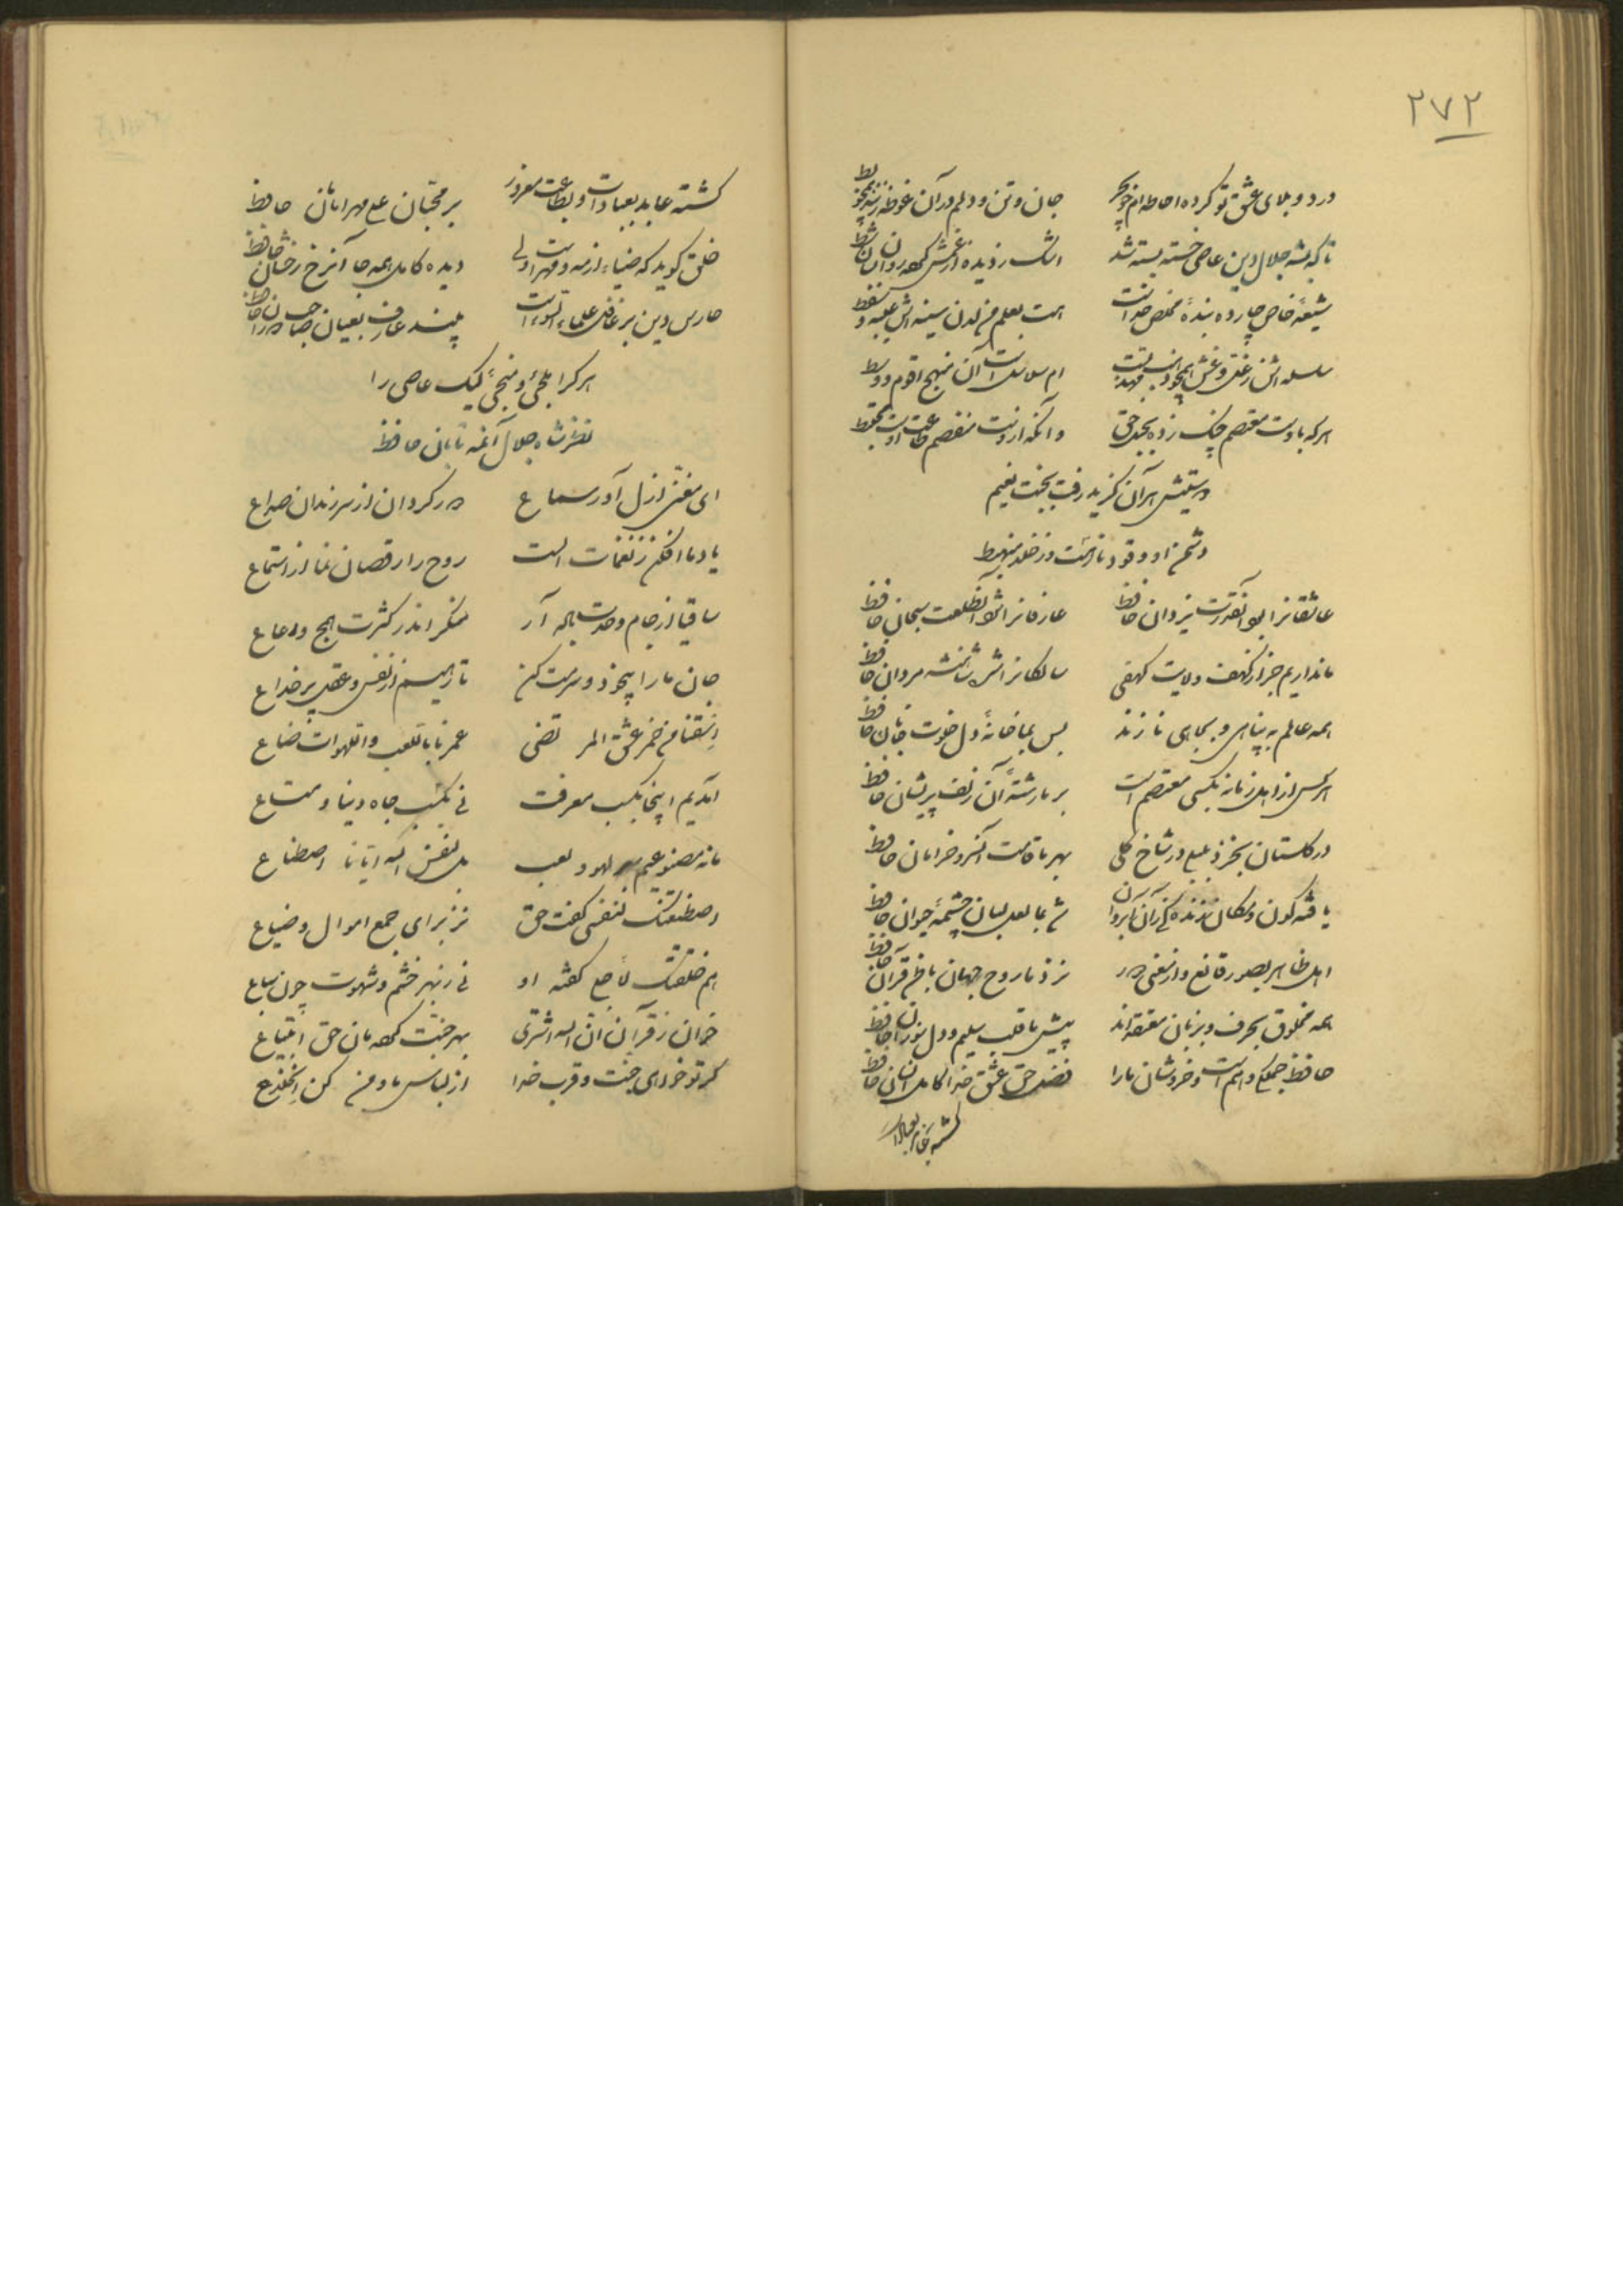 ۲۷۲
درد و بلای عشق تو کرده احاطه‌ام چو بحر جان و تن و دلم در آن غوطه زند چو بط
تا که بشه جلال دین عاصی خسته بسته شد اشک ز دیده از غمش همچو روان
شیعهٔ خاص چارده بندهٔ مخلص خداست هست بعلم من لدن سینه‌اش
سلسله‌اش ز غل و غش آن منهج اقوم و وسط
هر که باوست معتصم چنگ زده بحبل حق وانکه ازوست منفصم طاعت اوست
در ستیش هر آن گزید رفت بجنت نعیم
دشمن او وقود نار هست و ز خلد منهبط
عاشقانرا بود آنقدرت یزدان حافظ عارفانرا شد آنطلعت سبحان حافظ
ما نداریم جز از کهف ولایت کهفی سالکانراش شاهنشه مردان حافظ
همه عالم به پناهی و بجاهی نازند بس بما خانهٔ دل خلوت جانان حافظ
هر کس از اهل زمانه بکسی معتصم است بر ما رشتهٔ آن زلف پریشان حافظ
در گلستان بخزد بلبل در شاخ گلی بهر ما قامت آنسرو خرامان حافظ
یافته کون و مکان زنده شد بما لعل لبان چشمهٔ حیوان حافظ
اهل ظاهر بصور قانع و از معنی دور نزد ما روح جهان ناظم قرآن حافظ
همه مخلوق بحرف و بزبان معتقدند پیش ما قلب سلیم و دل نورانی حافظ
حافظ جمله و هم است و خروشان ما را فضل حق عشق خدا کامل انسان حافظ
گشته عابد بعبادات
گشته عابد بعبادات و بطاعت مغرور بر محبان علی مهر امامان حافظ
خلق گوید که ضیاء از مه و مهر اولی دیده کامل همه جا آنرخ رخشان حافظ
حارس دین بر غافل علماء السوء است بیند عارف بعیان صاحب دوران حافظ
هر کرا ملجئ و منجئ لیک عاصی را
نظر شاه جلال آنمه تابان حافظ
ای مغنی از ازل آور سماع دور گردان از سر رندان صداع
یاد ما افکن ز نغمات الست روح را رقصان نما از استماع
ساقیا از جام وحدت باده آر منگر اندر کثرت همج و رعاع
جان ما را بیخود و سرمست کن تا رهیم از نفس و عقل پر خداع
اسقنا من خمر عشق المرتضی عمرنا باللعب واللهوات ضاع
آمدیم اینجا بکسب معرفت نی بکسب جاه و دنیا و متاع
ما نه مصنوعیم بهر لهو و لعب بل لنفس الله ایانا اصطناع
اصطنعتک لنفسی گفت حق نز برای جمع اموال و ضیاع
هم خلقتک لاجلی گفته او نی ز بهر خشم و شهوت چون سباع
خوان ز قرآن ان الله اشتری بهر جنت کهمان حق ابتیاع
گر تو خواهی جنت و قرب خدا از لباس ما و من کن انخلاع